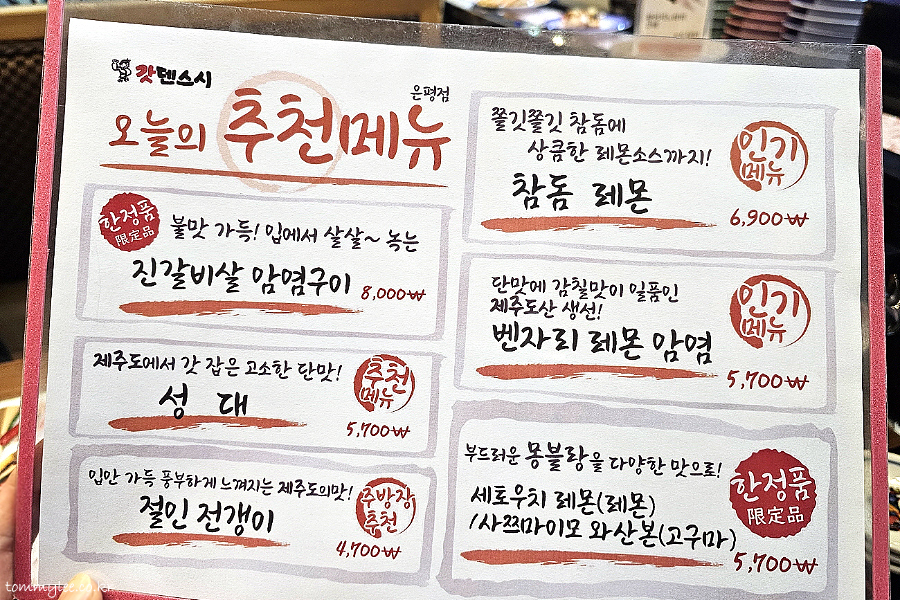 갓덴스시
은평점
오늘의 추천메뉴
한정품
限定品
불맛 가득! 입에서 살살~ 녹는
진갈비살 암염구이 8,000₩
제주도에서 갓 잡은 고소한 단맛!
추천
메뉴
성 대
5,700₩
입안 가득 풍부하게 느껴지는 제주도의맛!
주방장
추천
절인 전갱이
4,700₩
쫄깃쫄깃 참돔에
상큼한 레몬소스까지!
인기
메뉴
참돔 레몬
6,900₩
단맛에 감칠맛이 일품인
제주도산 생선!
인기
메뉴
벤자리 레몬 암염
5,700₩
부드러운 몽블랑을 다양한 맛으로!
한정품
限定品
세토우치 레몬(레몬)
/사쯔마이모 와산본(고구마)
5,700₩
tommylee.co.kr